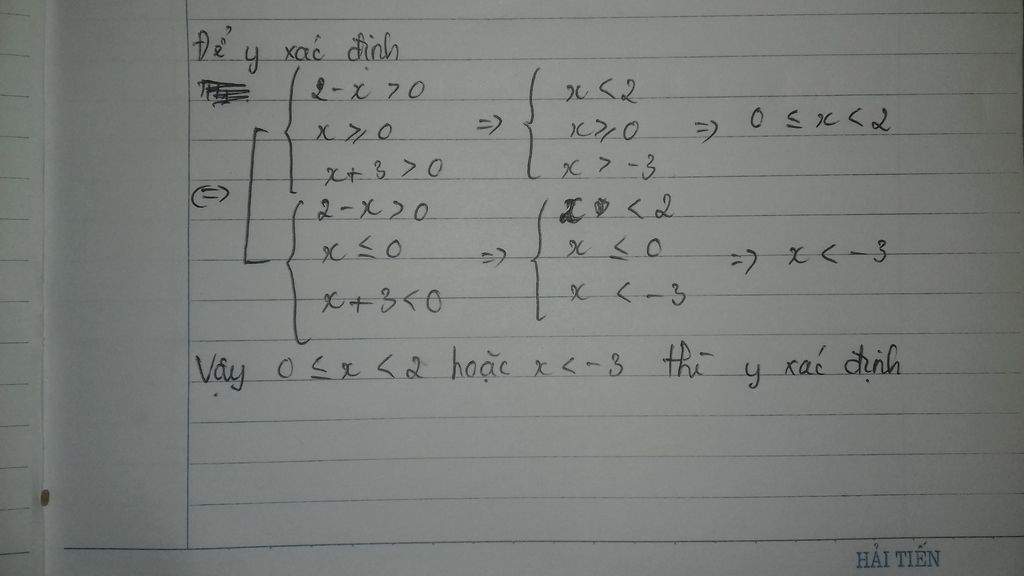 Để y xác định
2-x > 0
x ⩾ 0 => x < 2
x+3 > 0 x ⩾ 0 => 0 ≤ x < 2
x > -3
<=>
2-x > 0 x < 2
x ≤ 0 => x ≤ 0 => x < -3
x+3 < 0 x < -3
Vậy 0 ≤ x < 2 hoặc x < -3 thì y xác định
HẢI TIẾN